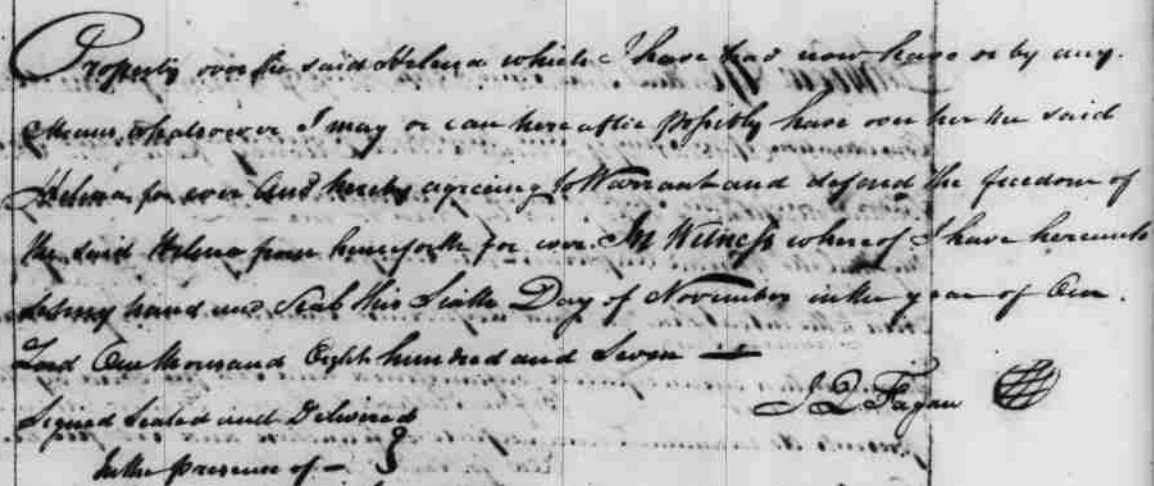 Property over the said Helena which I have had now have or by any
Means whatsoever I may or can here after possibly have over her the said
Helena for ever And hereby agreeing to Warrant and defend the freedom of
the said Helena from henceforth for ever. In Witness whereof I have hereunto
set my hand and Seal this Sixth Day of November in the year of Our
Lord One thousand Eight hundred and Seven —
J Q Fagan
Signed Sealed and Delivered
In the presence of — }